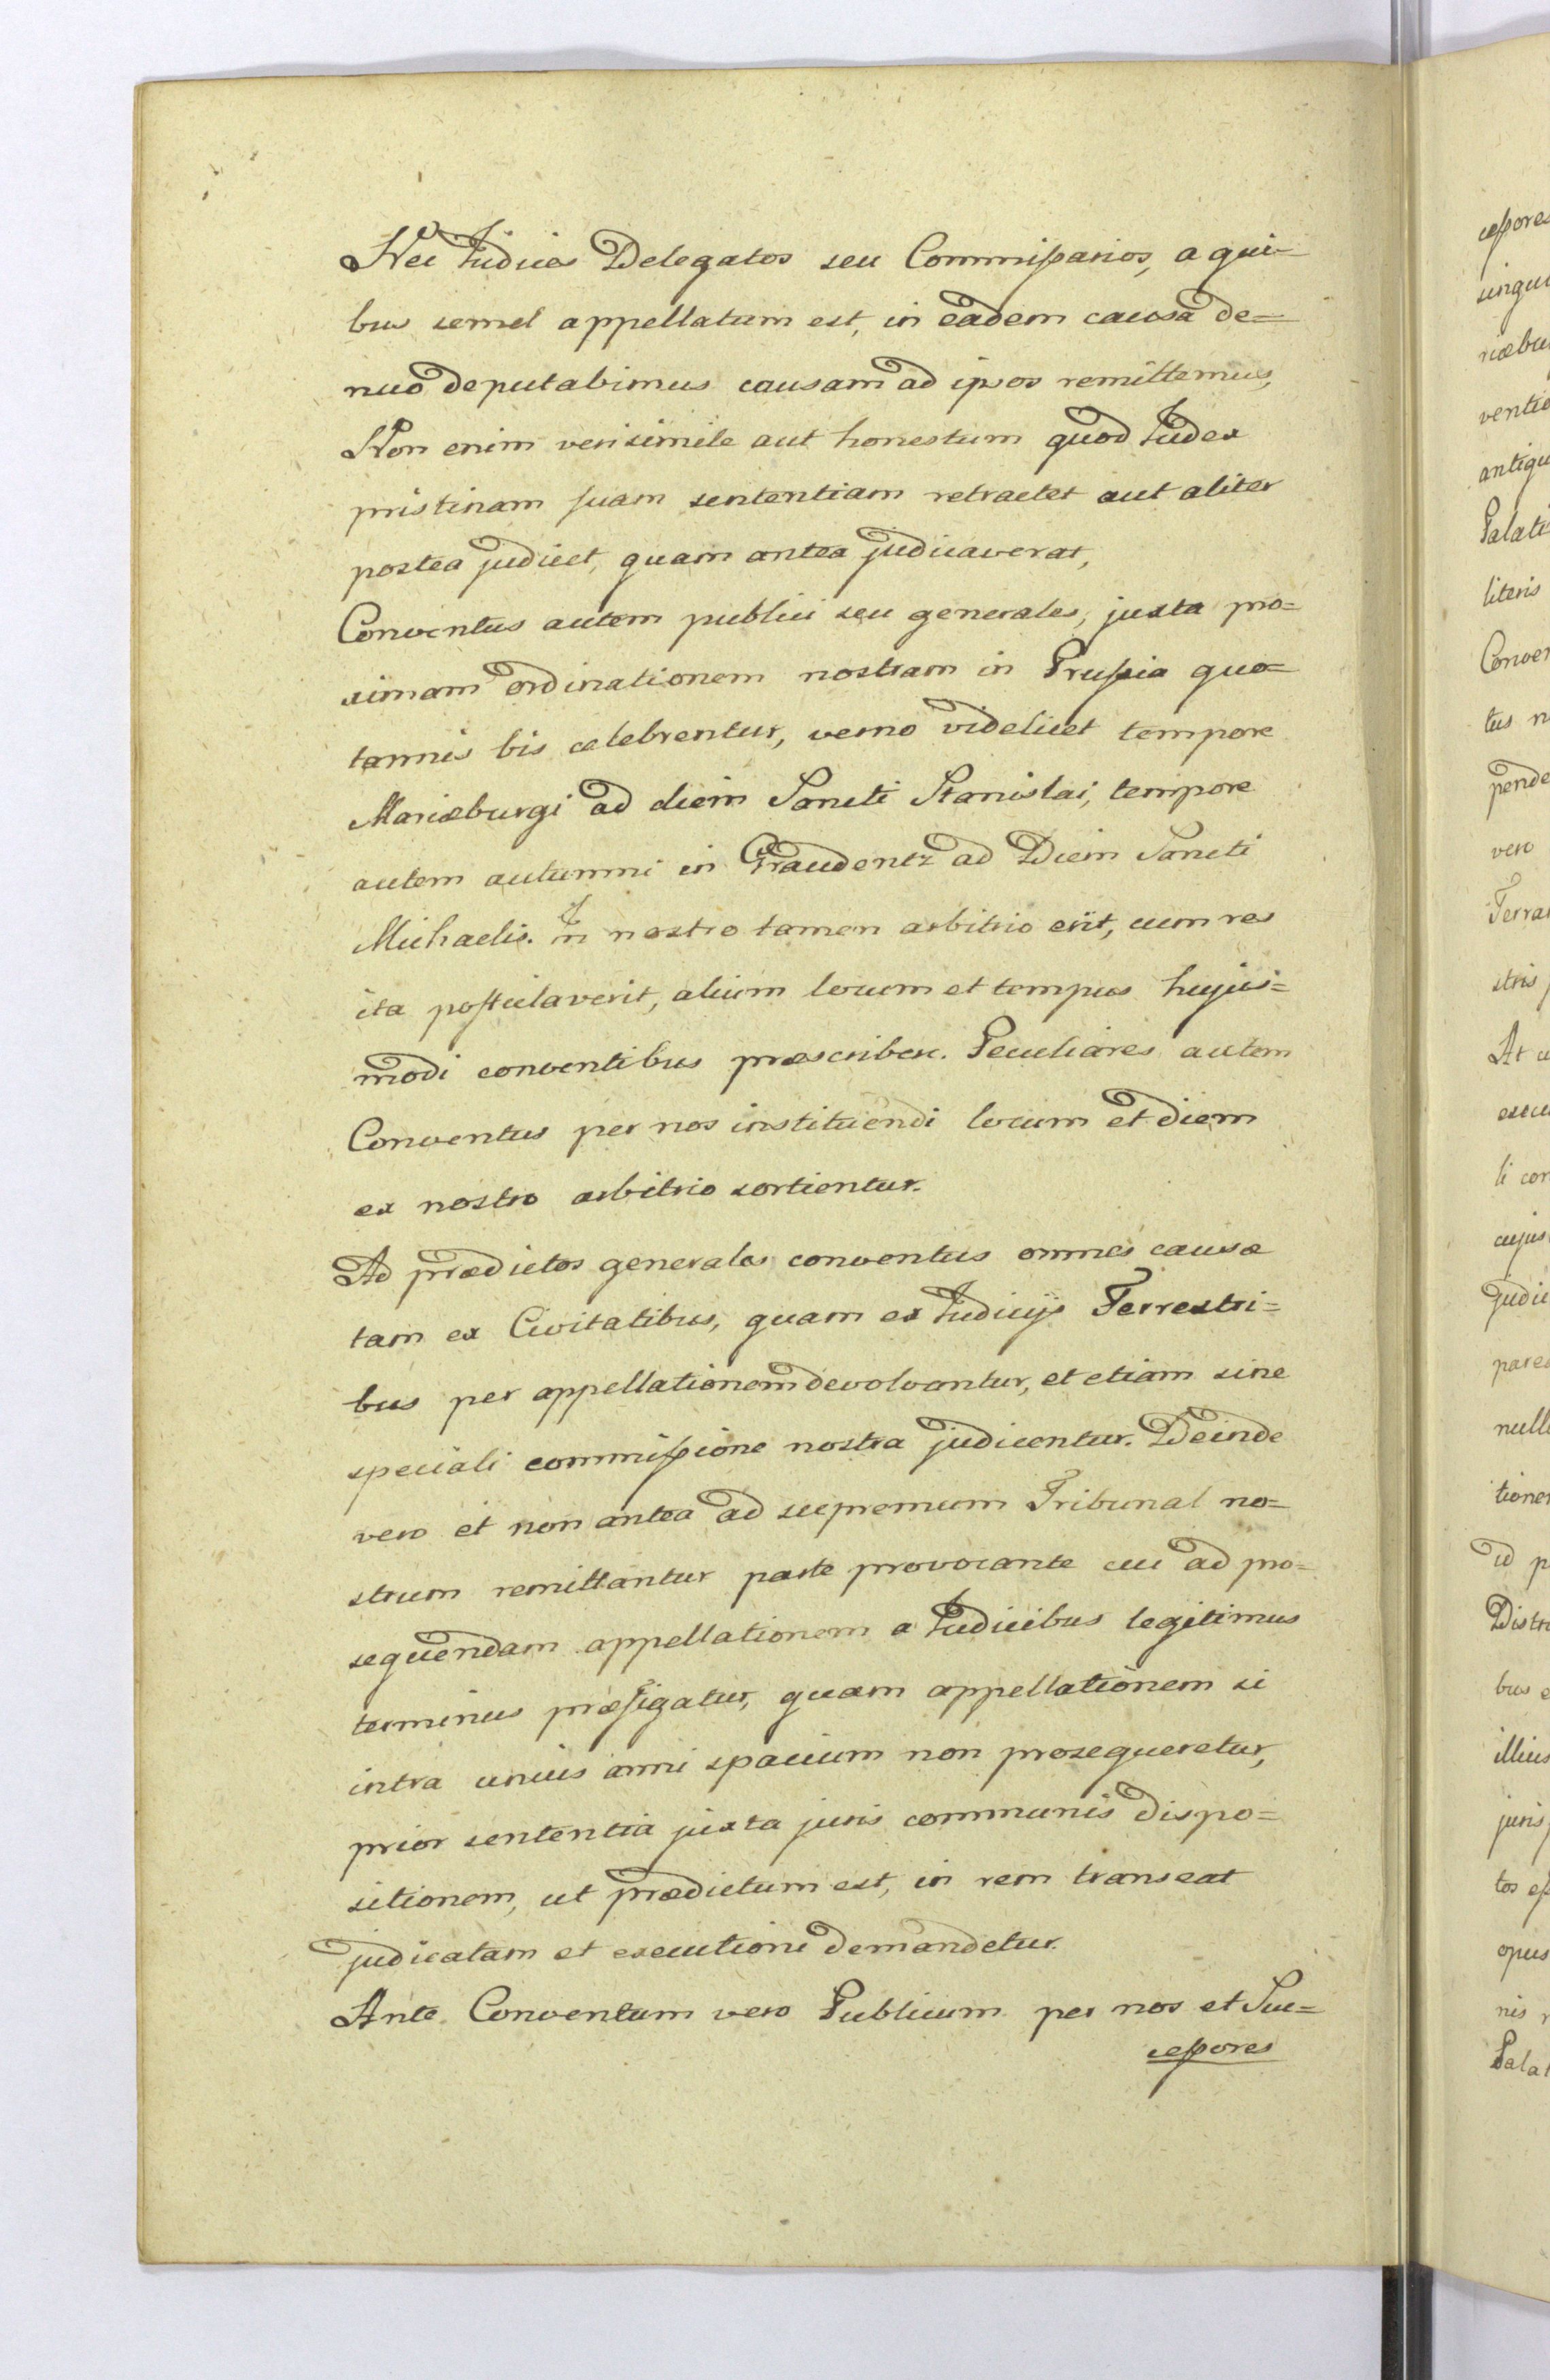 Nec Judices Delegatos seu Commissarios, a qui-
bus semel appellatum est, in eadem causa de=
nuo deputabimus causam ad ipsos remittemus,
Non enim verisimile aut honestum quod Judex
pristinam suam sententiam retractet aut aliter
postea judicet, quam antea judicaverat,
Conventus autem publici seu generales, juxta pro=
ximam ordinationem nostram in Prussia quo=
tannis bis celebrentur, verno videlicet tempore
Mariæburgi ad diem Sancti Stanislai, tempore
autem autumni in Graudentz ad Diem Sancti
Michaelis. In nostro tamen arbitrio erit, cum res
ita postulaverit, alium locum et tempus hujus=
modi conventibus præscribere. Peculiares autem
Conventus per nos instituendi locum et diem
ex nostro arbitrio sortientur.
Ad prædictos generales conventus omnes causæ
tam ex Civitatibus, quam ex Judicijs Terrestri=
bus per appellationem devolvantur, et etiam sine
speciali commissione nostra judicentur. Deinde
vero et non antea ad supremum Tribunal no=
strum remittantur parte provocante cui ad pro=
sequendam appellationem a Judicibus legitimus
terminus præfigatur, quam appellationem si
intra unius anni spacium non prosequeretur,
prior sententia juxta juris communis dispo=
sitionem, ut prædictum est, in rem transeat
judicatam et executioni demandetur.
Ante Conventum vero Publicum per nos et Suc=
cessores
cessores
singu
riæbu
ventio
antiqu
Palati
literis
Conven
tus n
pende
vero
Terrar
stris
At
execu
li con
cujus
judic
pares
null
tionem
id p
Distri
bus e
illius
juris
tos es
opus
nis
Palat